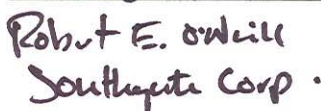 Robert E. O'Neill
Southgate Corp.